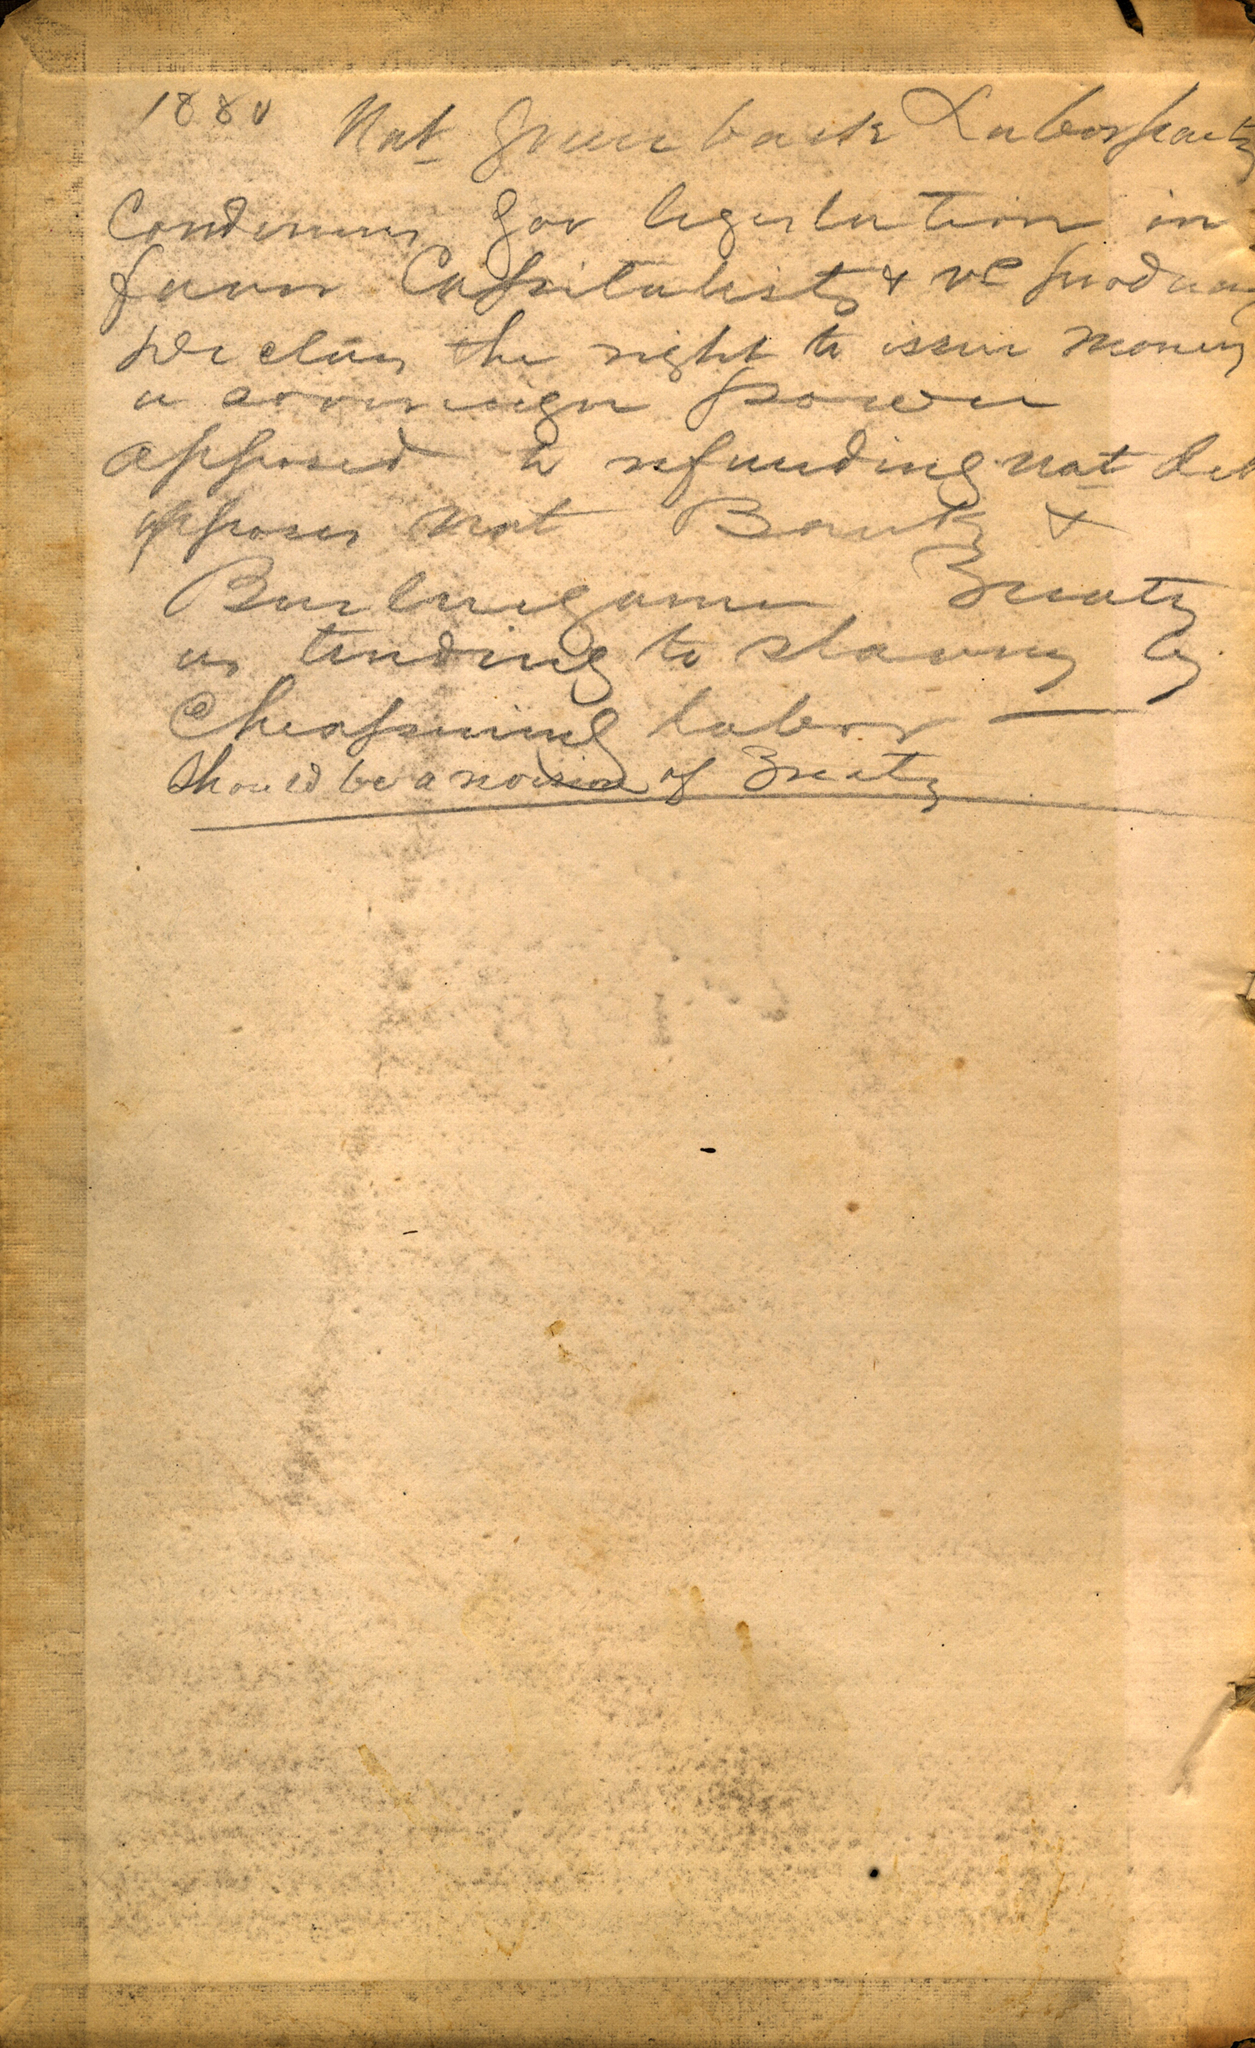 1880 Nat Greenback Labor party
Condemns Gov legislation in
favor Capitalists & vs
declares the right to issue money
a sovereign power
opposed to refunding nat deb
opposes Nat Banks &
Burlingame Treaty
as tending to slavery by
Cheapening labor —
Should be a of Treaty